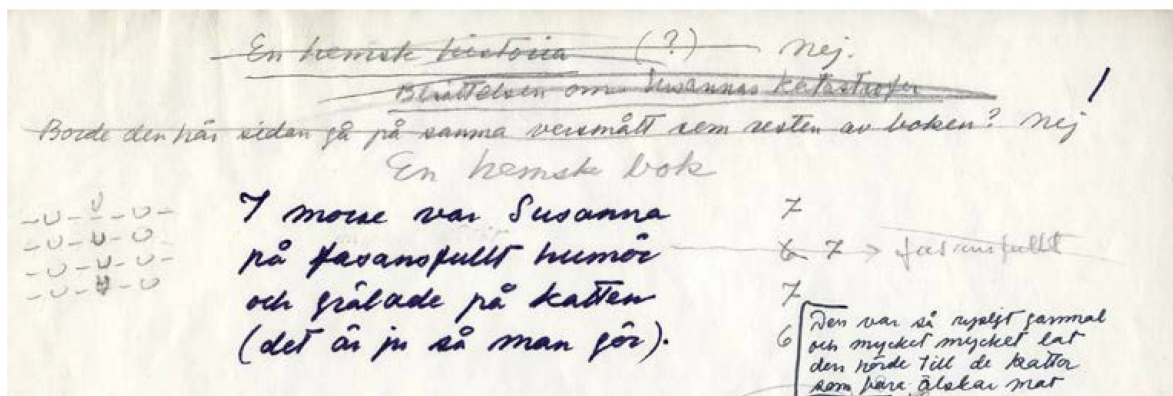 En hemsk historia (?) Nej.
Berättelsen om Susannas katastrofer
/
Borde den här sidan gå på samma versmått som resten av boken? Nej
En hemsk bok
I morse var Susanna 7
på fasansfullt humör 6 7 → fasansfullt
och grälade på katten 7
(det är ju så man gör). 6
Den var så rysligt gammal
och mycket mycket lat
den hörde till de katter
som bara älskar mat